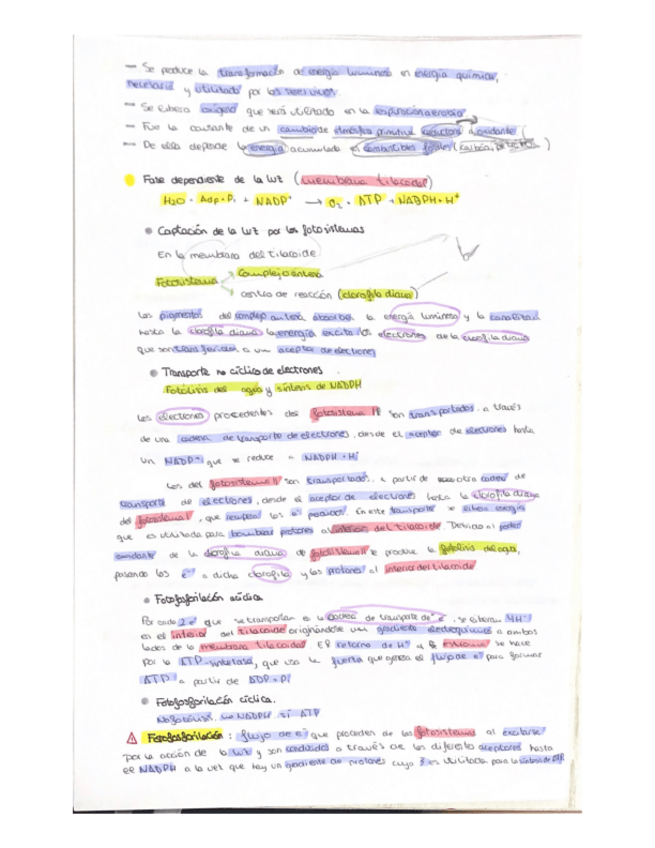 — Se produce la transformación de energía luminosa en energía química,
necesaria y utilizada por los seres vivos.
— Se libera oxígeno que será utilizado en la respiración aerobia
— Fue la causante de un cambio de atmósfera primitiva reductora a oxidante
— De ella depende la energía acumulada en combustibles fósiles (carbón, petróleo)
Fase dependiente de la luz (membrana tilacoidal)
H2O + Adp + Pi + NADP+ → O2 + ATP + NADPH + H+
• Captación de la luz por los fotosistemas
En la membrana del tilacoide
Fotosistema Complejo antena
centro de reacción (clorofila diana)
Los pigmentos del complejo antena absorben la energía luminosa y la canalizan
hasta la clorofila diana la energía excita los electrones de la clorofila diana
que son transferidos a un aceptor de electrones
• Transporte no cíclico de electrones.
Fotólisis del agua y síntesis de NADPH
Los electrones procedentes del fotosistema son transportados a través
de una cadena de transporte de electrones, desde el aceptor de electrones hasta
un NADP+ que se reduce a NADPH + H+
Los del fotosistema II son transportados, a partir de otra cadena de
transporte de electrones, desde el aceptor de electrones hasta la clorofila diana
del fotosistema I, que recupera los e- perdidos. En este transporte se libera energía
que es utilizada para bombear protones al interior del tilacoide. Debido al poder
oxidante de la clorofila diana de fotosistema II se produce la fotólisis del agua,
pasando los e- a dicha clorofila y los protones al interior del tilacoide
• Fotofosforilación acíclica
Por cada 2 e- que se transportan en la cadena de transporte de e-, se liberan 4H+
en el interior del tilacoide originándose un gradiente electroquímico a ambos
lados de la membrana tilacoidal. El retorno de H+ al se hace
por la ATP-sintetasa, que usa la fuerza que genera el flujo de e- para formar
ATP a partir de ADP + Pi
• Fotofosforilación cíclica.
No fotólisis, no NADPH, sí ATP
Fotofosforilación: flujo de e- que proceden de los fotosistemas al excitarse
por la acción de la luz y son conducidos a través de los diferentes aceptores hasta
el NADPH a la vez que hay un gradiente de protones cuya es utilizada para la síntesis de ATP